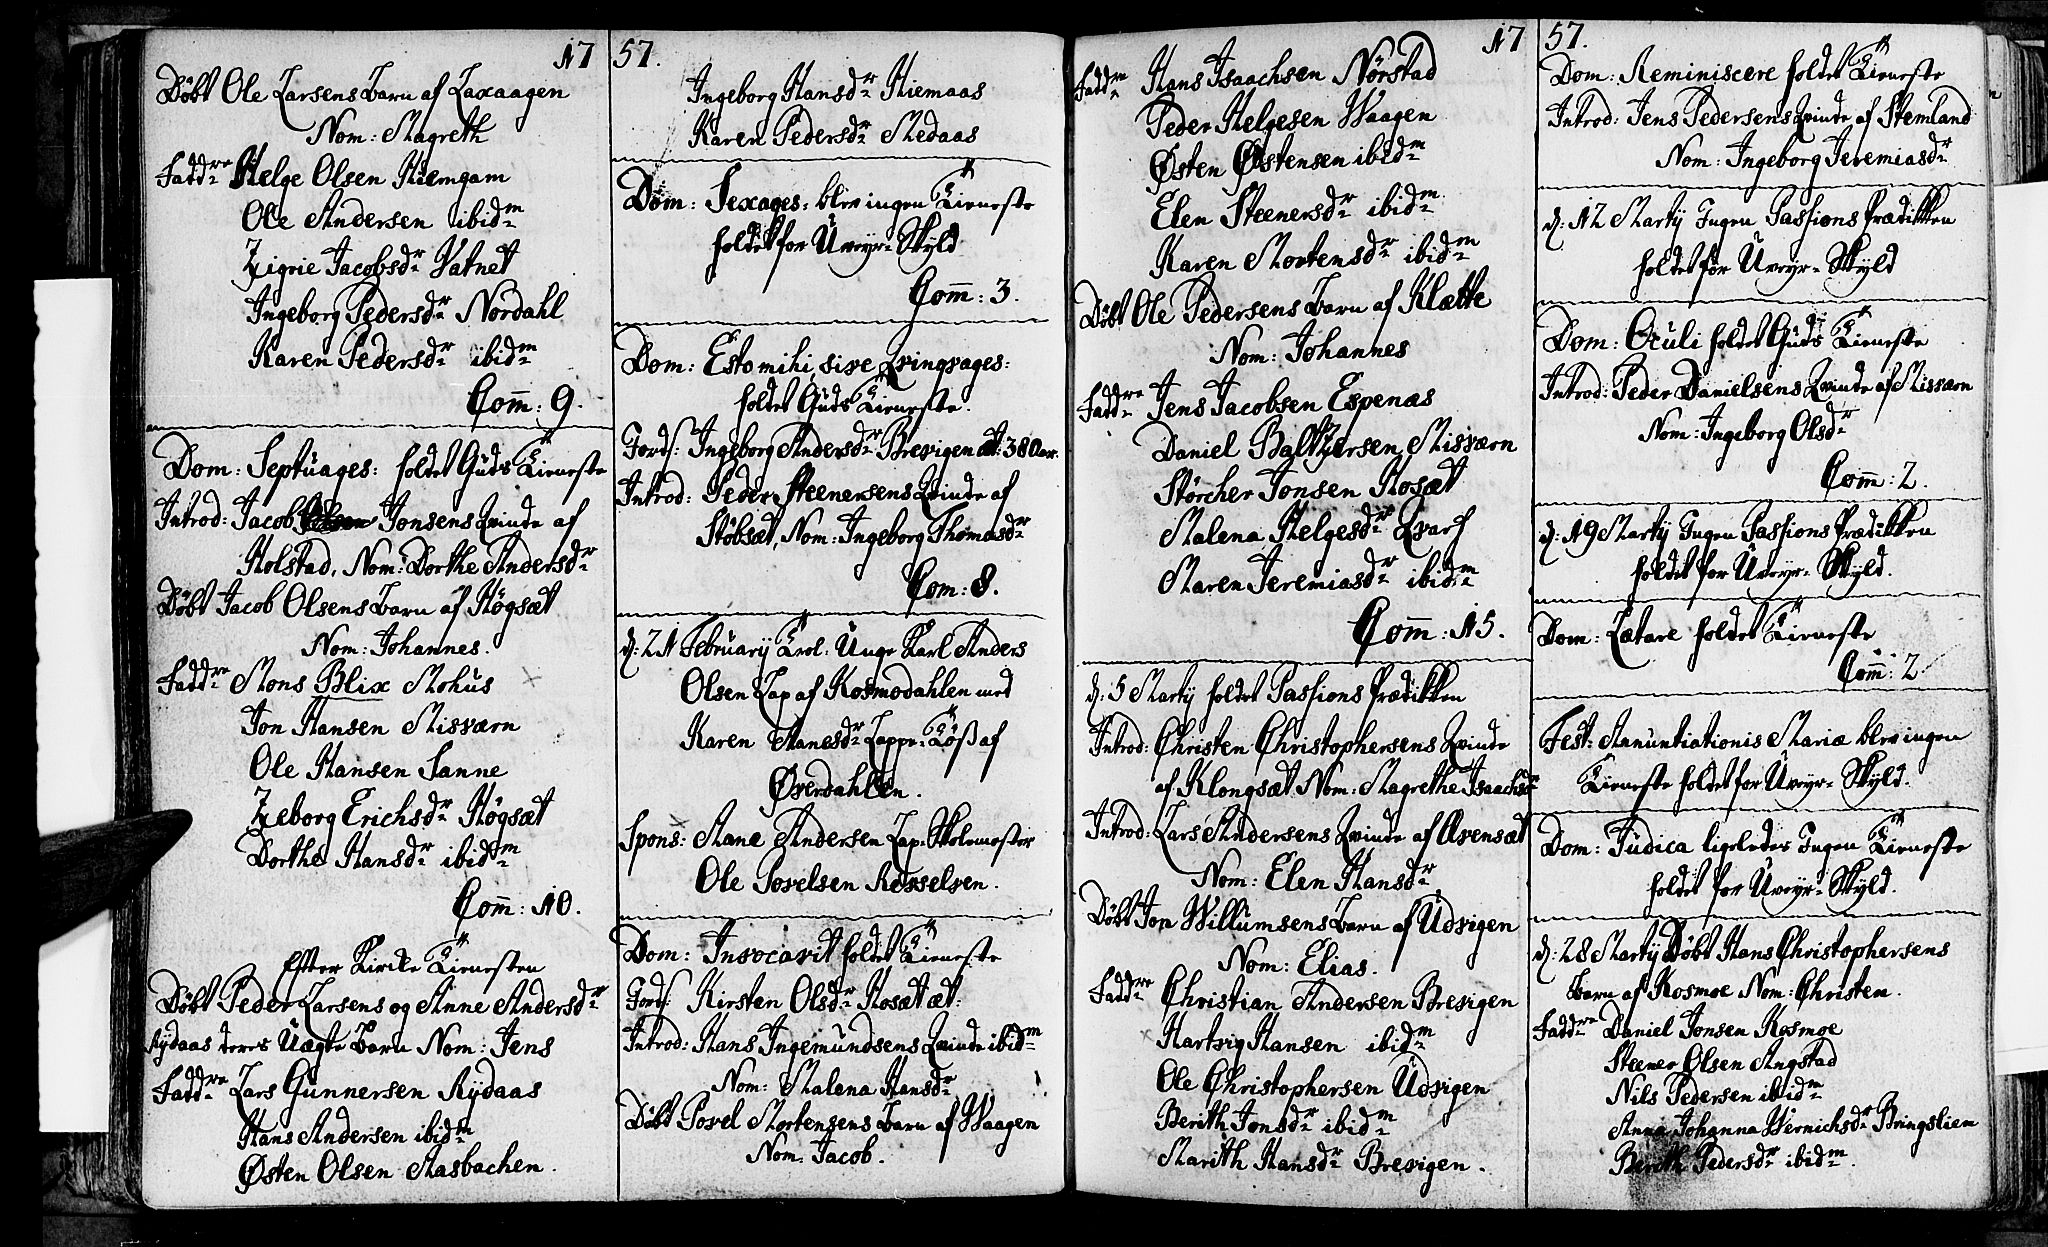 17 57.
Döbt Ole Larsens Barn af Laxaagen
Nom: Magreth
Faddre Helge Olsen Hiemgam
Ole Andersen ibidm
Zigrie Jacobsdr Vatnet
Ingeborg Pedersdr Nordahl
Karen Pedersdr ibidm
Com̄: 9.
Dom: Septuages: holdet Guds Tieneste
Introd: Jacob Jonsens Qvinde af
Holstad, Nom: Dorthe Andersdr
Döbt Jacob Olsens Barn af Høgsæt
Nom: Johannes.
Faddre Mons Blix Mohus
Jon Hansen Misværn
Ole Hansen Sanne
Zeborg Erichsdr Høgsæt
Dorthe Hansdr ibidm
Com̄: 10.
Efter Kircke Tienesten
Döbt Peder Larsens og Anne Andersdr
Rydaas deres Uægte Barn Nom: Jens
Faddre Lars Gunnersen Rydaas
Hans Andersen ibidm
Østen Olsen Aasbachen.
Ingeborg Hansdr Hiemaas
Karen Pedersdr Medaas
Dom: Sexages: blev ingen Tieneste
holdet for Uveyr-Skyld
Com̄: 3.
Dom: Estomihi sive Qvinqvages:
holdet Guds Tieneste.
Jords: Ingeborg Andersdr Brevigen æt: 38 Aar.
Introd: Peder Steenersens Qvinde af
Støbsæt, Nom: Ingeborg Thomasdr
Com: 8.
d: 21 February Trol: Unge Karl Anders
Olsen Lap af Kosmodahlen med
Karen Aanesdr Lappe-Tøß af
Øverdahlen.
Spons: Aane Andersen Lap-Skolemester
Ole Povelsen Røsselven.
Dom: Invocavit holdet Tieneste
Jords: Kirsten Olsdr Hosæt æt:
Introd: Hans Ingemundsens Qvinde ibidm
Nom: Malena Hansdr
Döbt Povel Mortensens Barn af Waagen
Nom: Jacob.
17 57.
Faddre Hans Isaachsen Nørstad
Peder Helgesen Waagen
Østen Østensen ibidm
Elen Steenersdr ibidm
Karen Mortensdr ibidm
Döbt Ole Pedersens Barn af Klætte
Nom: Johannes
Faddre Jens Jacobsen Espenæs
Daniel Baltzersen Misværn
Størcher Jonsen Hosæt
Malena Helgesdr Qvarf
Maren Jeremiasdr ibidm
Com̄: 15.
d: 5 Martij holdet Passions Prædikken
Introd: Christen Christophersens Qvinde
af Klongsæt Nom: Magrethe Isaachsdr
Introd: Lars Andersens Qvinde af Alvensæt
Nom: Elen Hansdr
Döbt Jon Willumsens Barn af Udvigen
Nom: Elias.
Faddre Christian Andersen Brevigen
Hartvig Hansen ibidm
Ole Christophersen Udvigen
Berith Jonsdr ibidm
Marith Hansdr Brevigen.
Dom: Reminiscere holdet Tieneste
Introd: Jens Pedersens Qvinde af Stemland
Nom: Ingeborg Jeremiasdr
d: 12 Martij Ingen Passions Prædikken
holdet for Uveyr-Skyld
Dom: Oculi holdet Guds Tieneste
Introd: Peder Danielsens Qvinde af Misværn
Nom: Ingeborg Olsdr
Com̄: 2.
d: 19 Martij Ingen Passions Prædikken
holdet for Uveyr-Skyld.
Dom: Lætare holdet Tieneste
Com̄: 2
Fest: Anuntiationis Mariæ blev ingen
Tieneste holdet for Uveyr-Skyld.
Dom: Judica ligeledes Ingen Tieneste
holdet for Uveyr-Skyld.
d: 28 Martij Döbt Hans Christophersens
Barn af Kosmoe Nom: Christen.
Faddre Daniel Jonsen Kosmoe
Steener Olsen Angstad
Nils Pedersen ibidm
Anna Johanna Wernichsdr Bringslien
Berith Pedersdr ibidm.